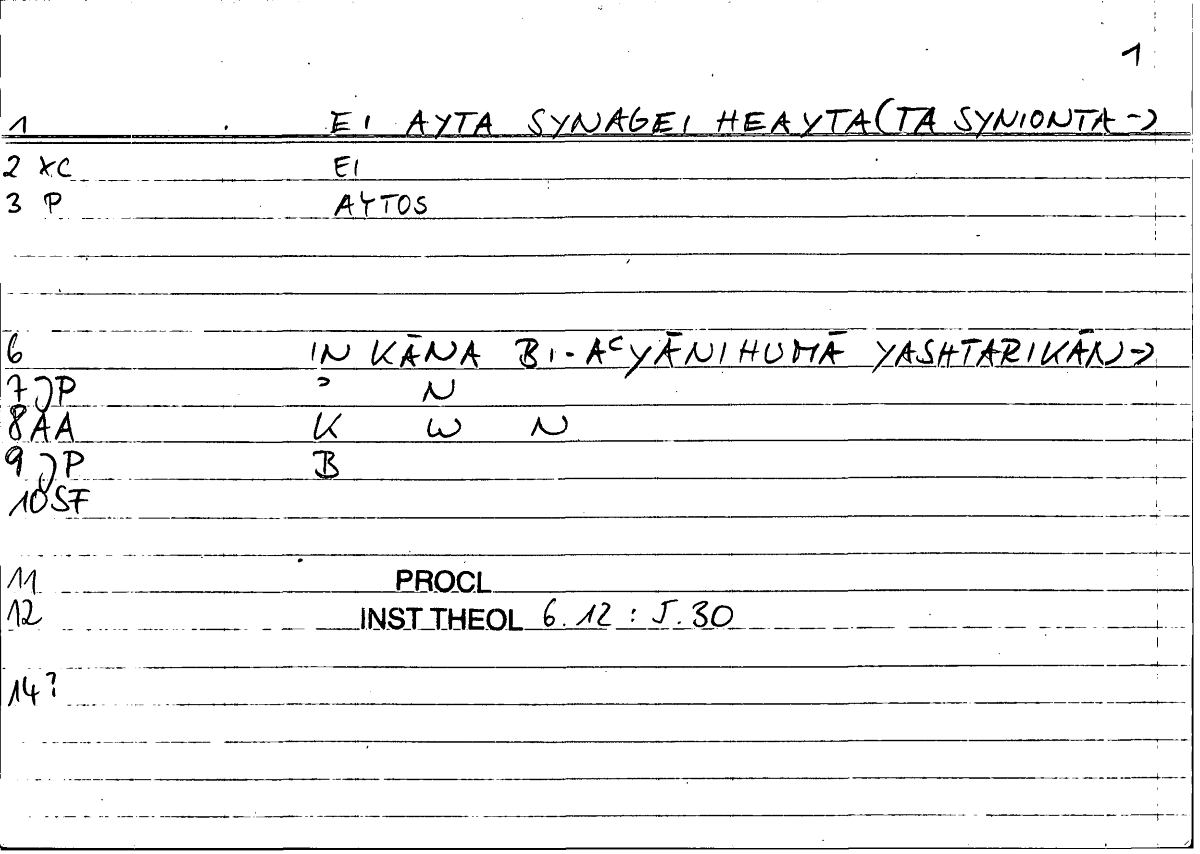 1
1 EI AYTA SYNAGEI HEAYTA(TA SYNIONTA→
2 XC EI
3 P AYTOS
6 IN KĀNA BI-AᶜYĀNIHUMĀ YASHTARIKĀN→
7 JP ʾ N
8 AA K W N
9 JP B
10 SF
11 PROCL
12 INST THEOL 6.12 : 5.30
14?